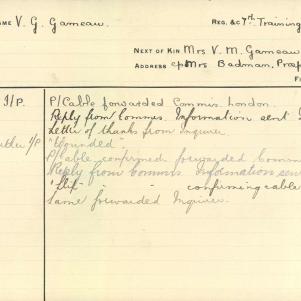 NAME V. G. Gameau.
REG. &c 7th Training
NEXT OF KIN Mrs V. M. Gameau
ADDRESS c/o Mrs Badman, Prosp
I/P. P/Cable forwarded Commis. London.
Reply from Commis. Information sent I
Letter of thanks from Inquirer
I/P "Wounded".
P/Cable confirmed forwarded Comm
Reply from Commis. Information sen
"Slip" - - confirming cable
Same forwarded Inquirer.